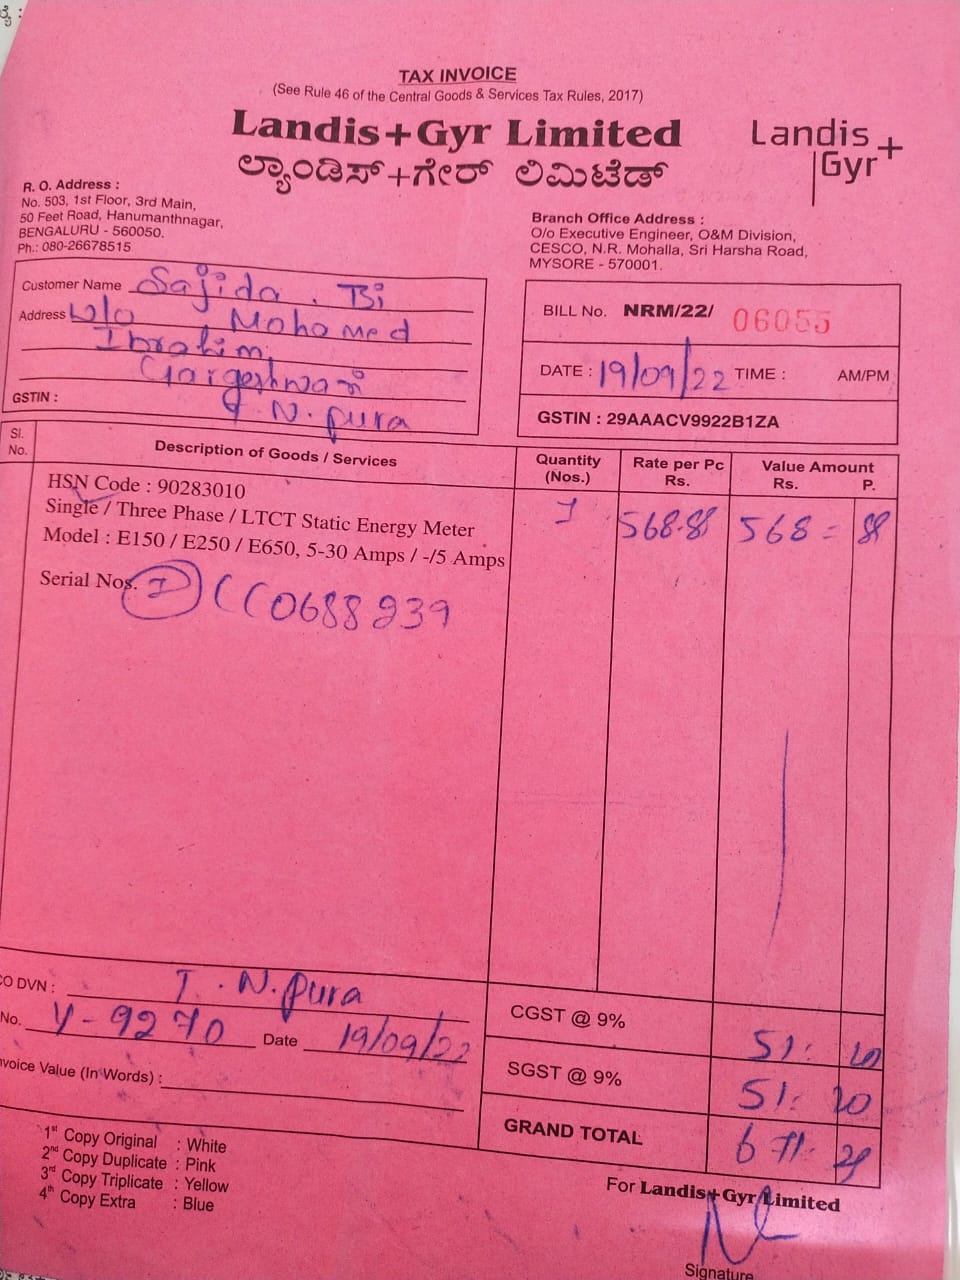 TAX INVOICE
(See Rule 46 of the Central Goods & Services Tax Rules, 2017)
Landis+Gyr Limited
ಲ್ಯಾಂಡಿಸ್+ಗೇರ್ ಲಿಮಿಟೆಡ್
Landis+
Gyr
R. O. Address :
No. 503, 1st Floor, 3rd Main,
50 Feet Road, Hanumanthnagar,
BENGALURU - 560050.
Ph.: 080-26678515
Branch Office Address :
O/o Executive Engineer, O&M Division,
CESCO, N.R. Mohalla, Sri Harsha Road,
MYSORE - 570001.
Customer Name Sajida . Bi
Address W/o Mohamed
Ibrahim,
Gargeshwari
GSTIN :
T. N. pura
BILL No. NRM/22/ 06055
DATE : 19/09/22 TIME : AM/PM
GSTIN : 29AAACV9922B1ZA
Sl. No. Description of Goods / Services Quantity (Nos.) Rate per Pc Rs. Value Amount Rs. P.
HSN Code : 90283010
Single / Three Phase / LTCT Static Energy Meter 1 568.88 568 = 88
Model : E150 / E250 / E650, 5-30 Amps / -/5 Amps
Serial Nos. CC0688939
CO DVN : T. N. pura
No. Y-9270 Date 19/09/22
nvoice Value (In Words) :
CGST @ 9% 51. 20
SGST @ 9% 51. 20
GRAND TOTAL 671.
1st Copy Original : White
2nd Copy Duplicate : Pink
3rd Copy Triplicate : Yellow
4th Copy Extra : Blue
For Landis+Gyr Limited
Signature